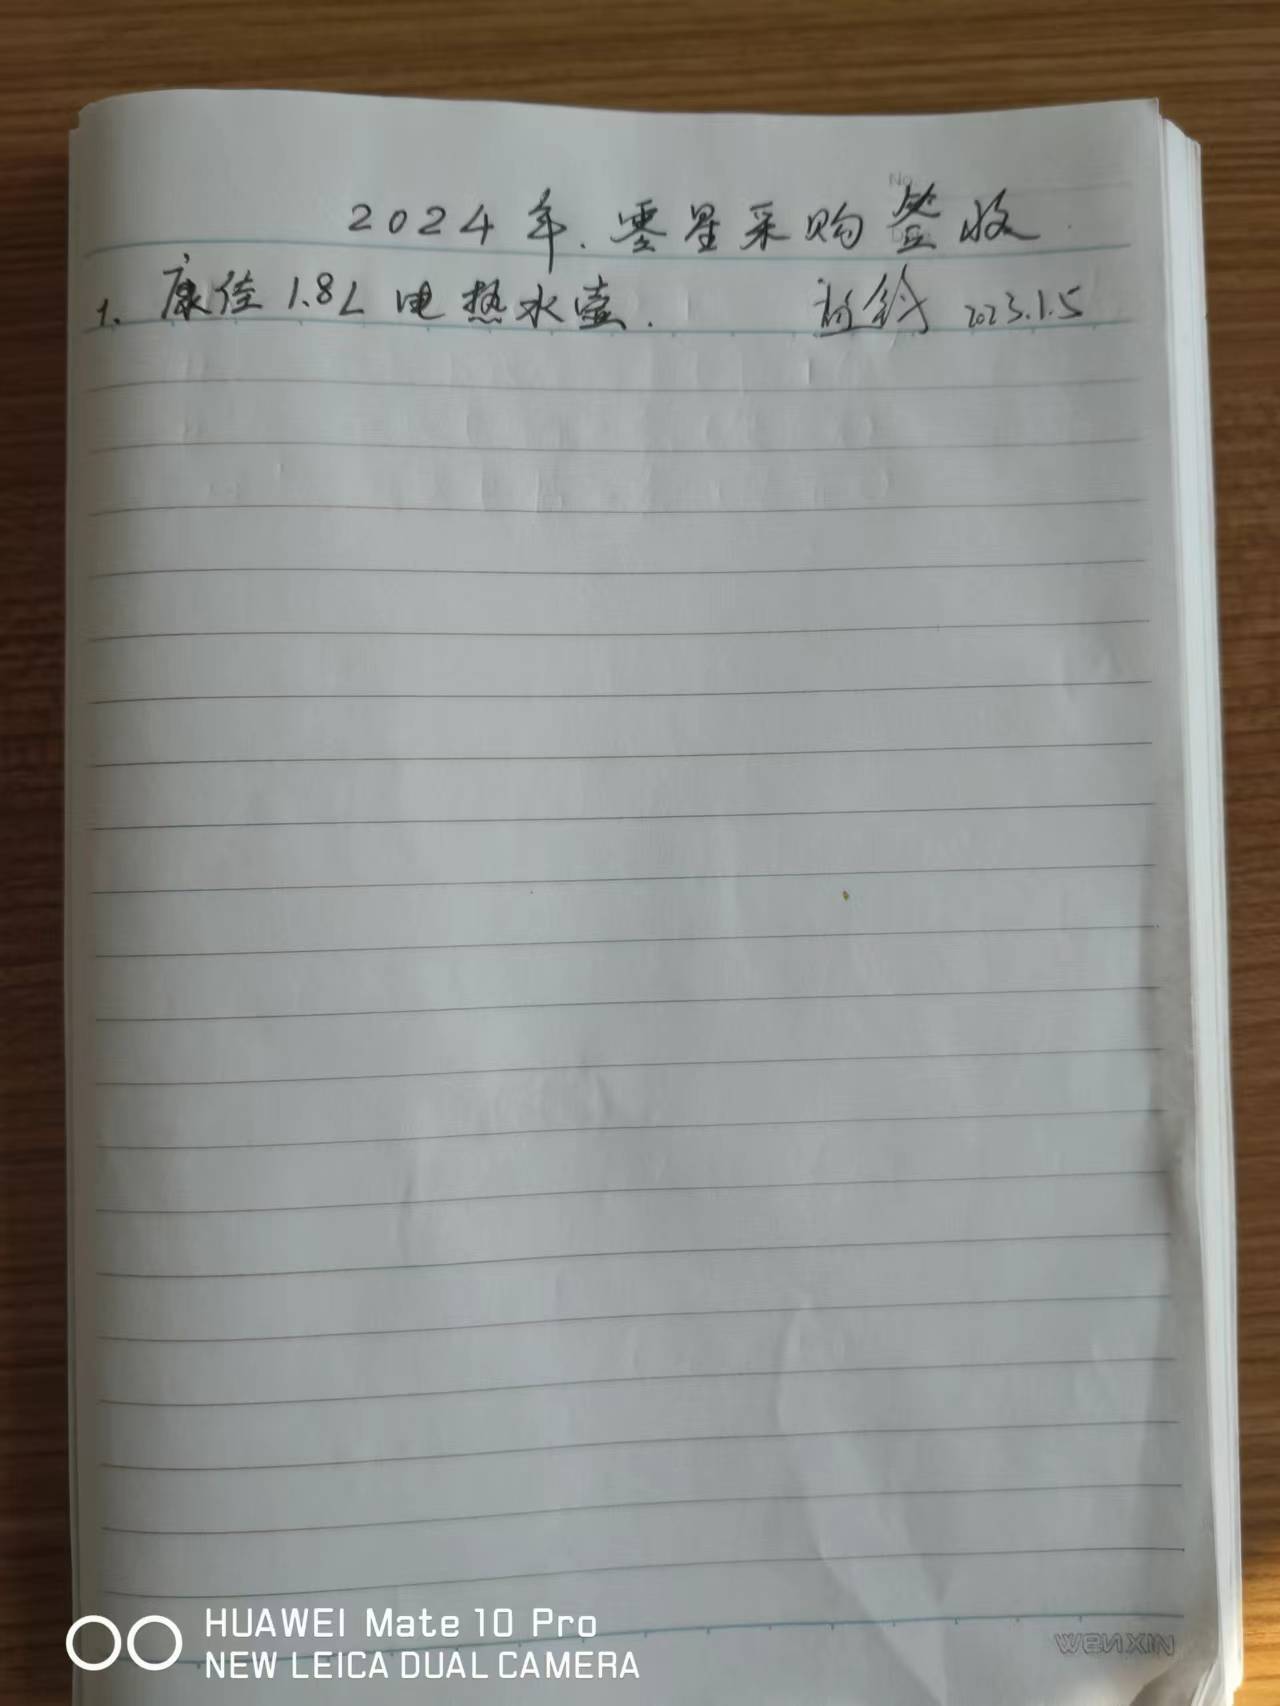 No
2024年.零星采购签收
1、康佳1.8L电热水壶. 2023.1.5
HUAWEI Mate 10 Pro
NEW LEICA DUAL CAMERA
WENXIN